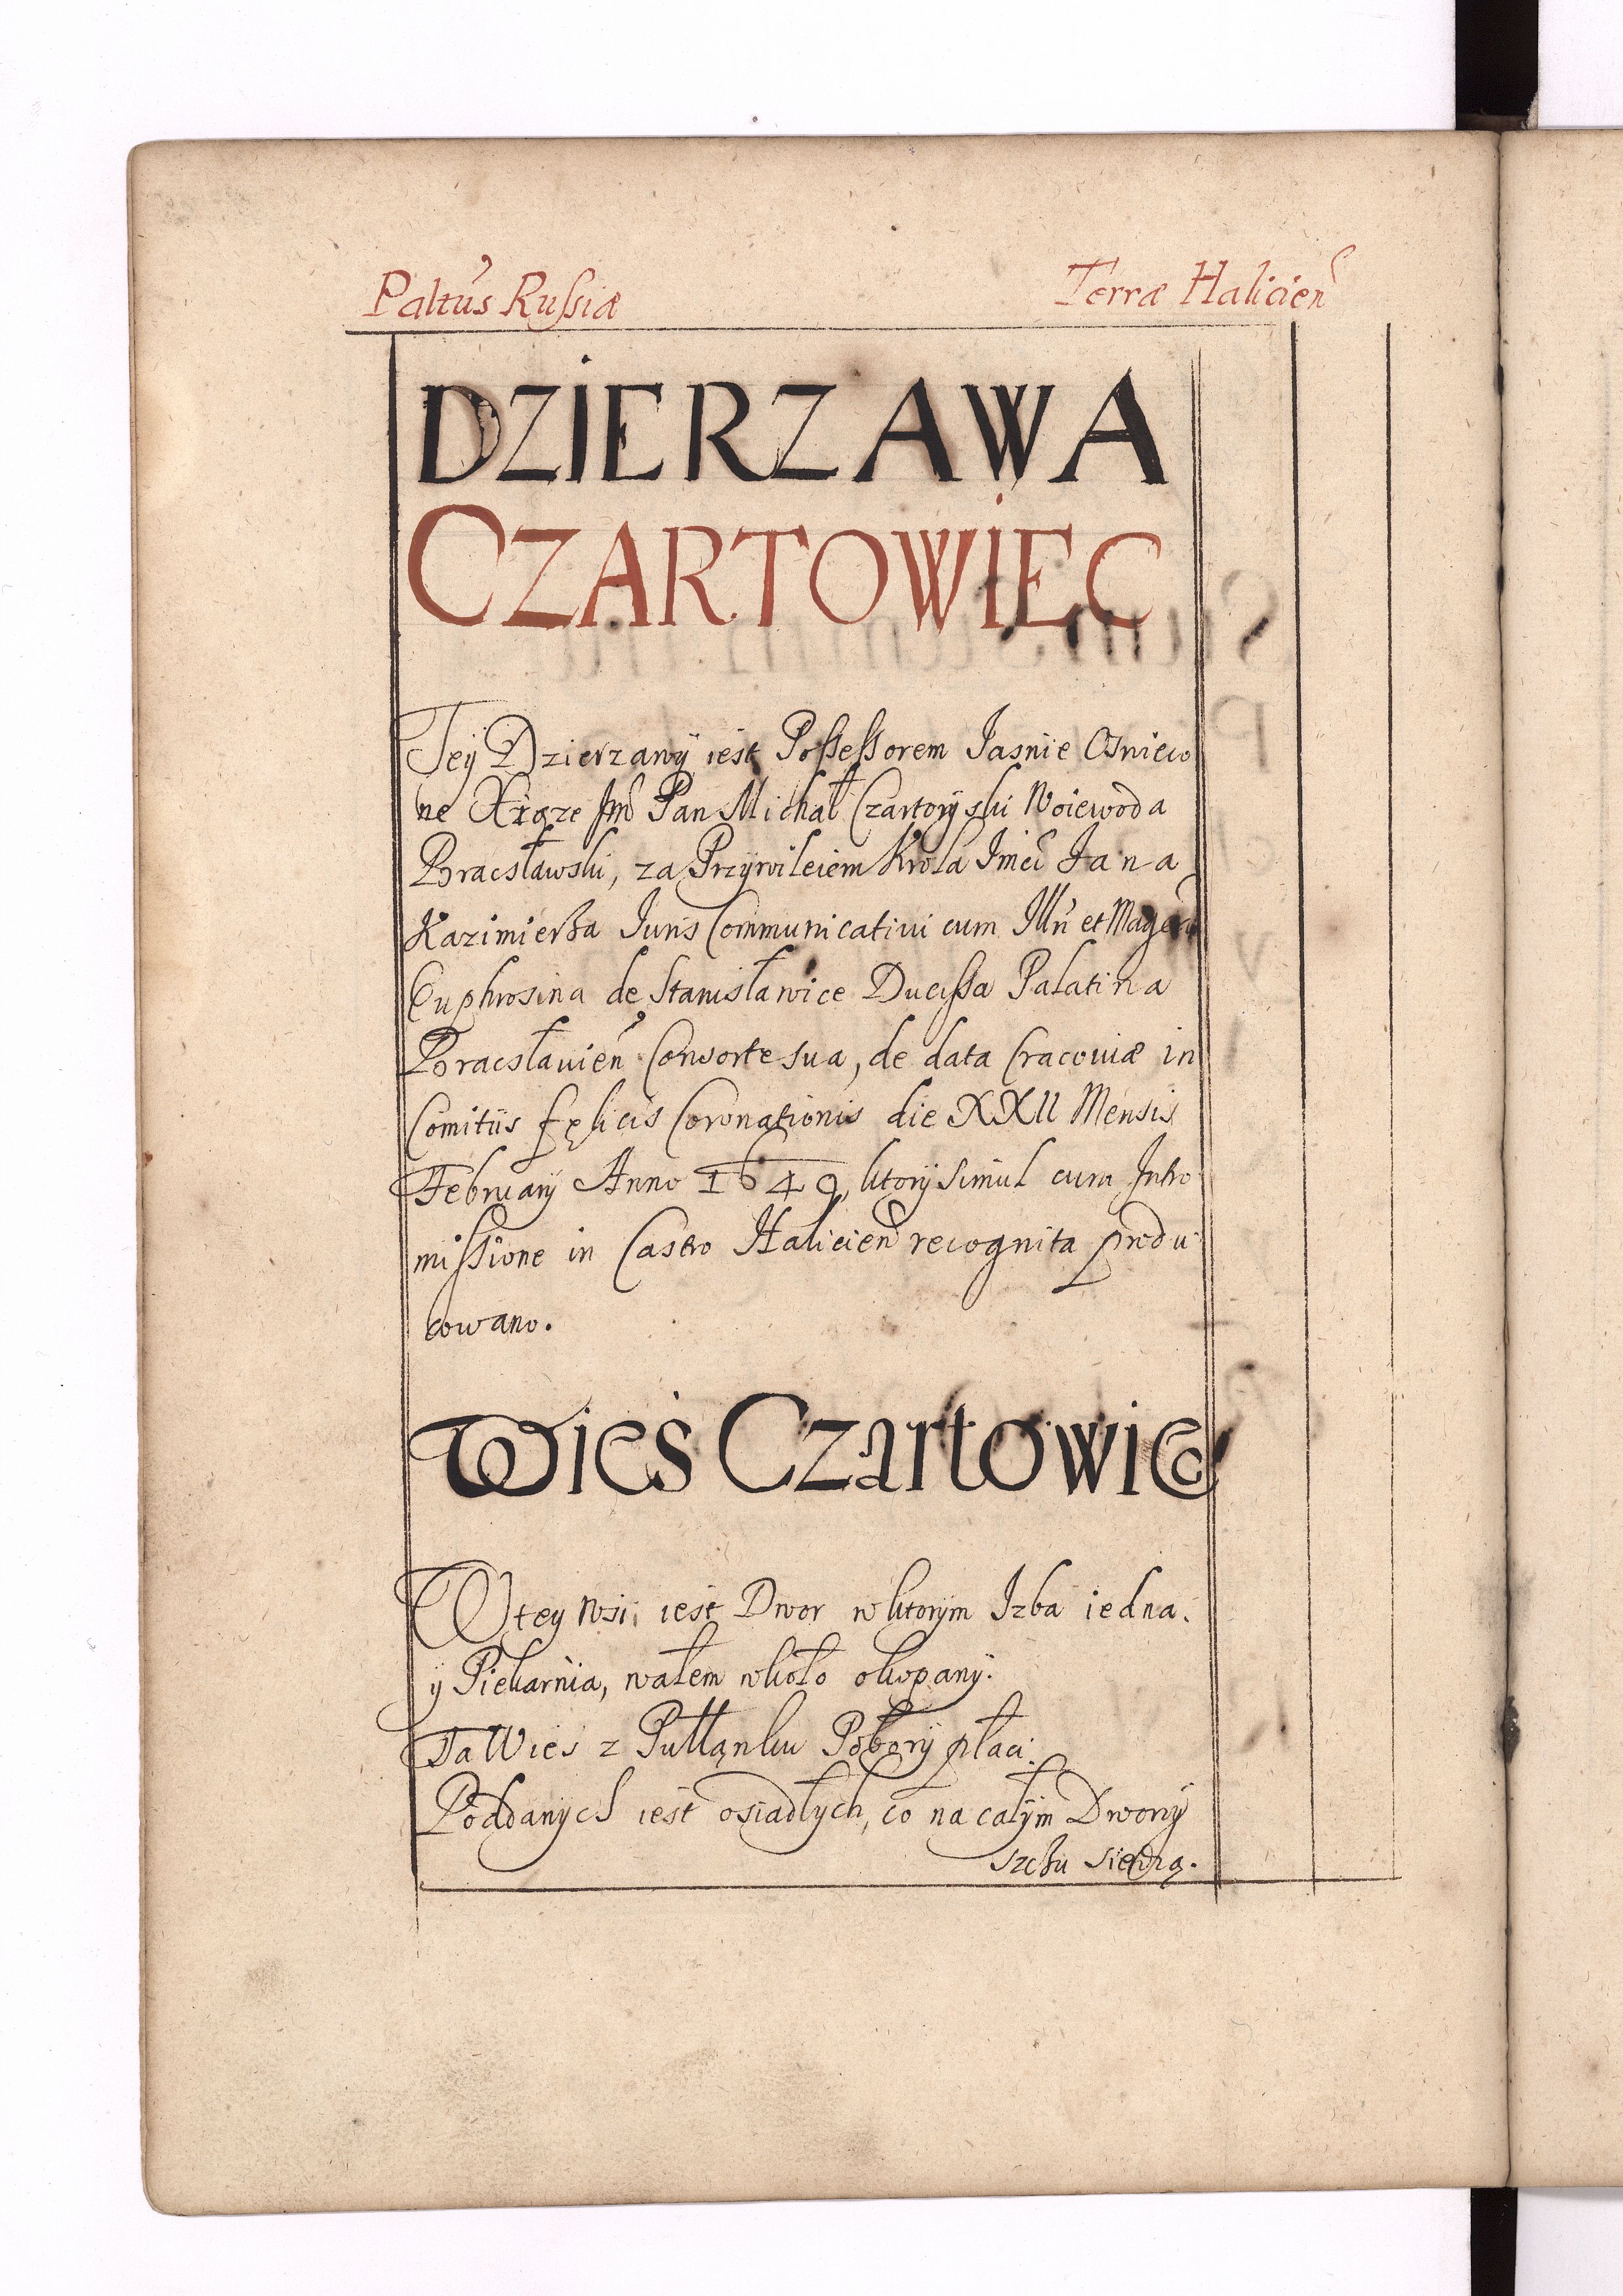 Paltūs Russiæ Terræ Halicien̄
DZIERZAWA
CZARTOWIEC
Teÿ Dzierzawÿ iest Possessorem Iasnie Oswieco
ne Xiąze Jmć Pan Michał Czartorÿski Woiewoda
Bracsławski, za Przÿwileiem Krola Imći Jana
Kazimierza Iuris Communicatiui cum Illn̄ et
Euphrosina de Stanisławice Ducissa Palatina
Bracslauien̄ Consorte sua, de data Cracouiæ in
Comitiis fęlicis Coronationis die XXII Mensis
Februarÿ Anno 1649, ktorÿ simul cum Intro
missione in Castro Halicien̄ recognita produ
kowano.
Wieś Czartowiec
W tey Wsi iest Dwor w ktorÿm Izba iedna.
ÿ Piekarnia, wałem wkoło okopanÿ.
Ta Wies z Pułłanku Poborÿ płaci.
Poddanÿch iest osiadłych, co na całÿm Dworzÿ
szcżu siedzą.